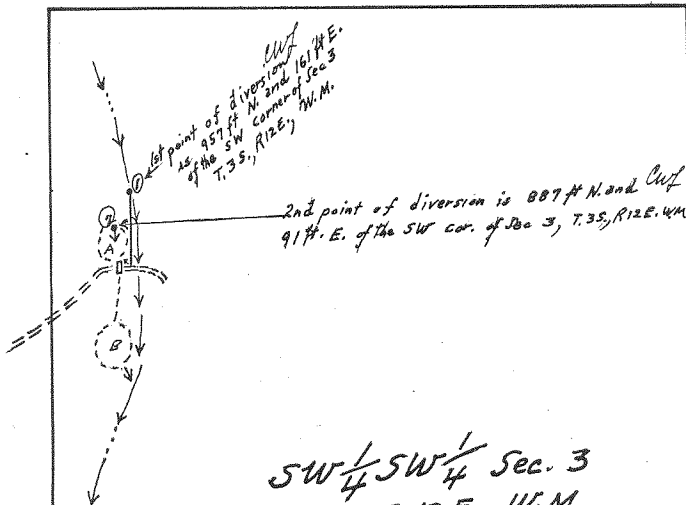 CWF
1st point of diversion
is 957 ft N. and 161 ft E.
of the SW corner of Sec 3
T.3S., R12E., W.M.
1
2nd point of diversion is 887 ft N. and CWF
91 ft. E. of the SW cor. of Sec 3, T.3S., R12E. WM
2
A
B
SW 1/4 SW 1/4 Sec. 3
W.M.